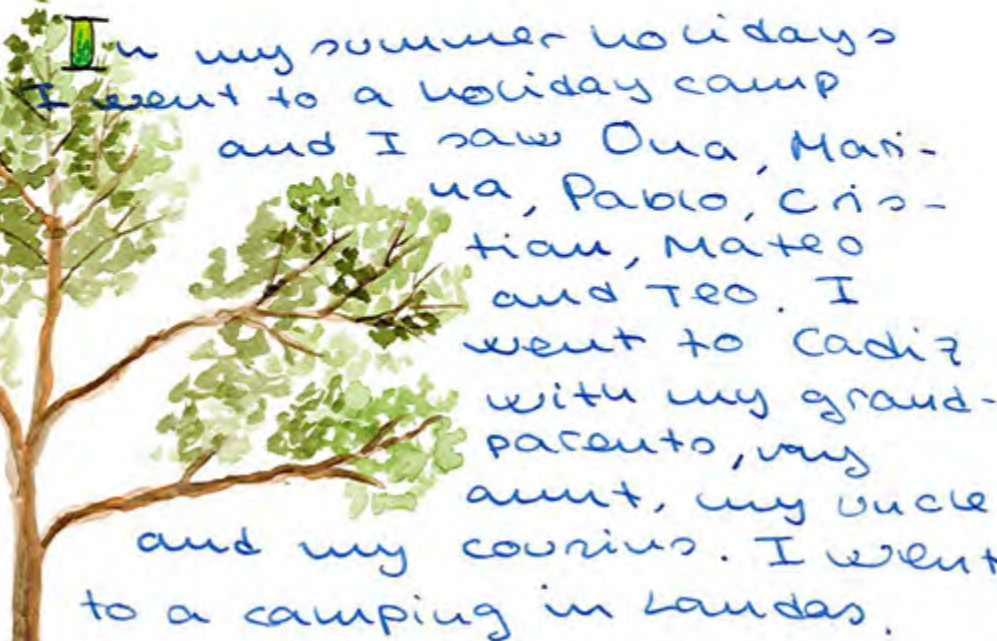 In my summer holidays
I went to a holiday camp
and I saw Ona, Mari-
na, Pablo, Cris-
tian, Mateo
and Teo. I
went to Cadiz
with my grand-
parents, my
aunt, my uncle
and my cousins. I went
to a camping in Landas.